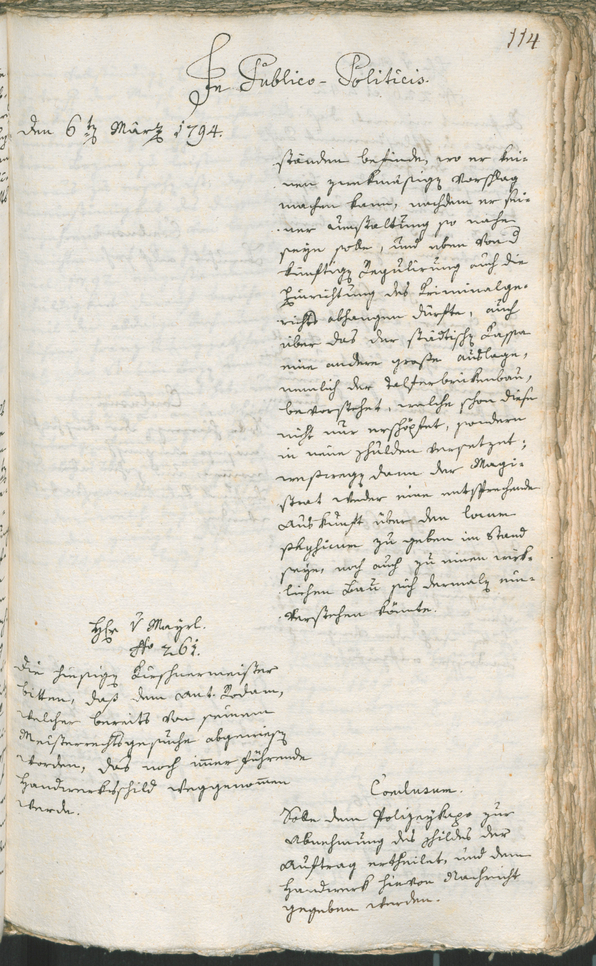 114
In Publico-Politicis.
den 6ten März 1794.
ständen befinde, wo er kei-
nen zwekmäsigen Vorschlag
machen kann, nachdem er sei-
ner umstaltung so nahen
seyn solle, und eben von d
künftigen Regulirung auch die
Einrichtung des Kriminalge-
richts abhangen dürfte, auch
über das der städtischen Cassa
eine andere große Auslage,
nemlich der Talferbrükenbau,
bevorstehet, welche schon diese
nicht nur erschöpfet, sondern
in neue schulden versetzet;
weßwegen dann der Magi-
strat weder eine entsprechende
Auskunft über den locum
zu geben im Stand
seye, noch auch zu einen wirk-
lichen Bau sich dermalen ein-
verstehen könnte.
H v Mayrl.
No 261.
Die hiesigen Kirschnermeister
bitten, daß dem Ant.
welcher bereits von seinem
Meisterrechtsgesuche abgewiesen
worden, das noch immer führende
Handwerksschild weggenommen
werde.
Conclusum.
Solle dem Polizeykapo zur
Abnehmung des schildes der
Auftrag ertheilet, und dem
Handwerk hievon Nachricht
gegeben werden.